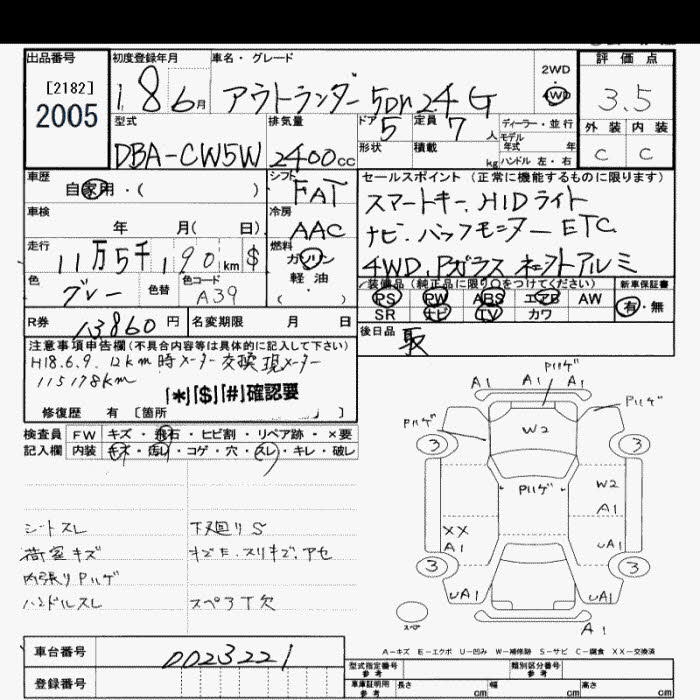 出品番号 初度登録年月 車名・グレード 評価点
[2182]
2005
18 6月 アウトランダー 5Dr 24 G
2WD
4WD
3.5
型式 排気量 ドア 5 定員 7人 ディーラー・並行
外装 内装
モデル年式 年
DBA-CW5W 2400cc
形状 積載 kg ハンドル 左・右
C C
車歴
自家用・( )
シフト
FAT
セールスポイント (正常に機能するものに限ります)
スマートキー、HIDライト
ナビ、バックモニター ETC
4WD、Pガラス
アルミ
車検
年 月( 日)
冷房
AAC
走行
11万5千190km $
燃料
ガソリン
軽・油
( )
色 グレー 色替 色コード A39
装備品 (純正品に限り○をつけてください) 新車保証書
PS PW ABS エアB AW
SR ナビ TV カワ
有・無
R券 13860円 名変期限 月 日
後日品 取
注意事項申告欄(不具合内容等は具体的に記入して下さい)
H18.6.9. 12km時メーター交換 現メーター
115178km
[*][$][#]確認要
修復歴 有 [箇所 ]
検査員記入欄
FW キズ・飛石・ヒビ割・リペア跡・×要
内装 キズ・汚レ・コゲ・穴・スレ・キレ・破レ
シートスレ 下廻りS
荷室キズ キズE、スリキズ、アセ
内張りPハゲ
ハンドルスレ スペアT欠
A1 A1 A1 Pハゲ
Pハゲ Pハゲ
W2
3 3
Pハゲ
W2
A1
XX
A1
uA1
3 3
uA1 uA1
A1
スペア
A-キズ E-エクボ U-凹み W-補修跡 S-サビ C-腐食 XX-交換済
車台番号 0023221
登録番号
型式指定番号 参考 類別区分番号 参考
車庫証明用 参考 長さ cm 幅 cm 高さ cm